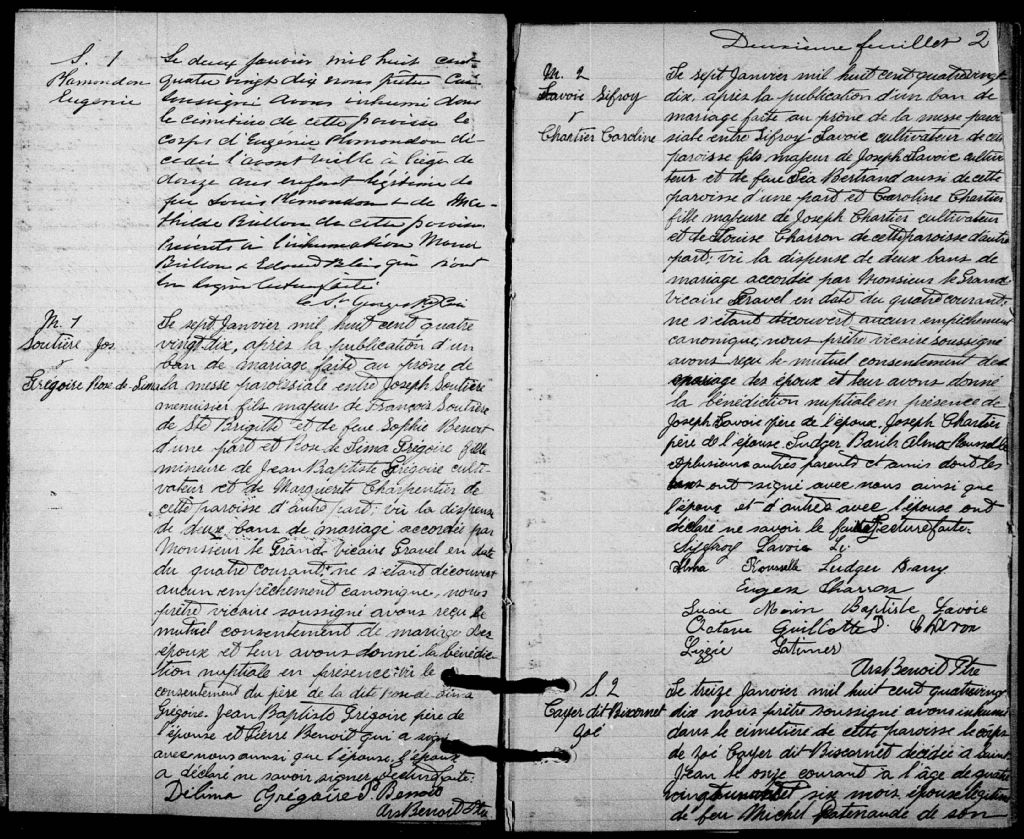 S. 1
Plamondon
Eugenie
Le deux Janvier mil huit cent
quatre vingt dix nous prêtre Curé
soussigné avons inhumé dans
le cimetière de cette paroisse le
corps d'Eugénie Plamondon dé
cédée l'avant veille à l'âge de
douze ans enfant légitime de
feu Louis Plamondon & de Ma
thilde Brillon de cette paroisse
Présents à l'inhumation
Brillon & Edouard Blais qui n'ont
su signer Lecture faite
M. 1
Soutière Jos
&
Grégoire Rose de Lima
Le sept Janvier mil huit cent quatre
vingt dix, après la publication d'un
ban de mariage faite au prône de
la messe paroissiale entre Joseph Soutière
menuisier fils majeur de François Soutière
de Ste Brigitte et de feue Sophie Benoit
d'une part et Rose de Lima Grégoire fille
mineure de Jean Baptiste Grégoire culti
vateur et de Marguerite Charpentier de
cette paroisse d'autre part; vu la dispense
de deux bans de mariage accordée par
Monsieur le Grand Vicaire Gravel en date
du quatre courant; ne s'étant découvert
aucun empêchement canonique, nous
prêtre vicaire soussigné avons reçu le
mutuel consentement de mariage des
époux et leur avons donné la bénédic
tion nuptiale en présence: vu le
consentement du père de la dite Rose de Lima
Grégoire. Jean Baptiste Grégoire père de
l'épouse et Pierre Benoit qui a signé
avec nous ainsi que l'épouse, l'époux
a déclaré ne savoir signer. Lecture faite.
Délima Grégoire P. Benoit
Ars Benoit Ptre
Deuxième feuillet 2
M. 2
Lavoie Sifroy
&
Chartier Caroline
Le sept Janvier mil huit cent quatre vingt
dix, après la publication d'un ban de
mariage faite au prône de la messe parois
siale entre Sifroy Lavoie cultivateur de cette
paroisse fils majeur de Joseph Lavoie cultiva
teur et de feue Léa Bertrand aussi de cette
paroisse d'une part et Caroline Chartier
fille majeure de Joseph Chartier cultivateur
et de Louise Charron de cette paroisse d'autre
part; vu la dispense de deux bans de
mariage accordée par Monsieur le Grand
vicaire Gravel en date du quatre courant;
ne s'étant découvert aucun empêchement
canonique, nous prêtre vicaire soussigné
avons reçu le mutuel consentement de
mariage des époux et leur avons donné
la bénédiction nuptiale en présence de
Joseph Lavoie père de l'époux, Joseph Chartier
père de l'épouse Ludger Barib Alma Rousselle
et plusieurs autres parents et amis dont les
uns ont signé avec nous ainsi que
l'époux et d'autres avec l'épouse ont
déclaré ne savoir le faire. Lecture faite.
Sifroy Lavoie
Alma Rousselle Ludger Barry
Eugen Charron
Lucie Morin Baptiste Lavoie
Octave Guillotte P. Charon
Lizzie Latimer
Ars Benoit Ptre
S. 2
Cayer dit Biscornet
Zoé
Le treize Janvier mil huit cent quatre vingt
dix nous prêtre soussigné avons inhumé
dans le cimetière de cette paroisse le corps
de Zoé Cayer dit Biscornet décédée à Saint
Jean le onze courant à l'âge de quatre
vingt et six mois, épouse légitime
de feu Michel Patenaude de son